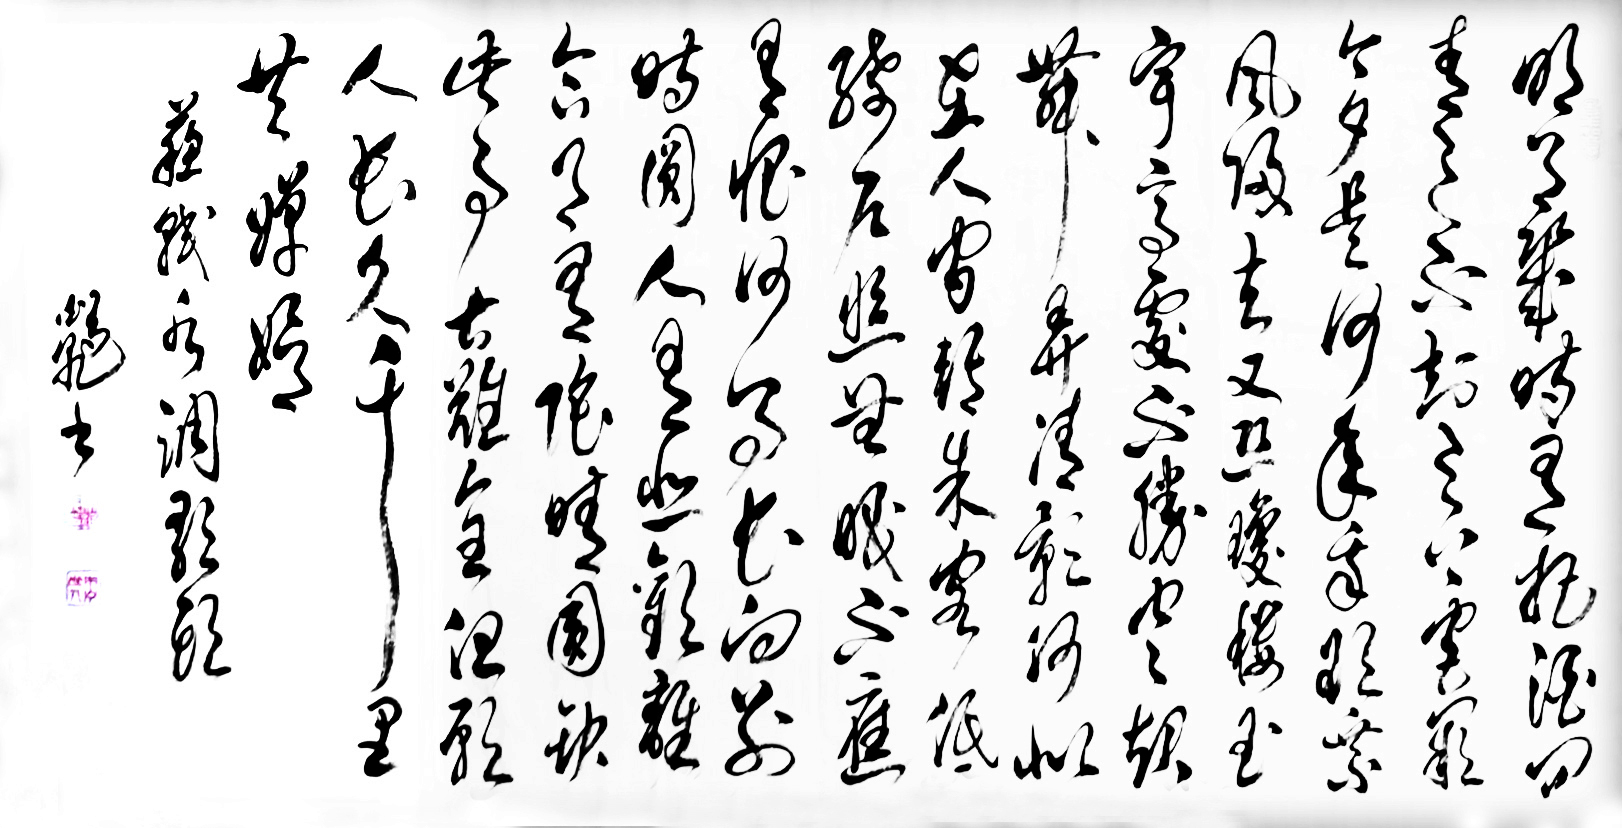 明月幾時有把酒问
青天不知天上宫阙
今夕是何年我欲乘
风归去又恐瓊樓玉
宇高處不勝寒起
舞弄清影何似
在人間轉朱阁低
綺户照無眠不應
有恨何事长向别
時圓人有悲歡離
合月有陰晴圓缺
此事古難全但願
人长久千里
共嬋娟
蘇軾水調歌頭
书